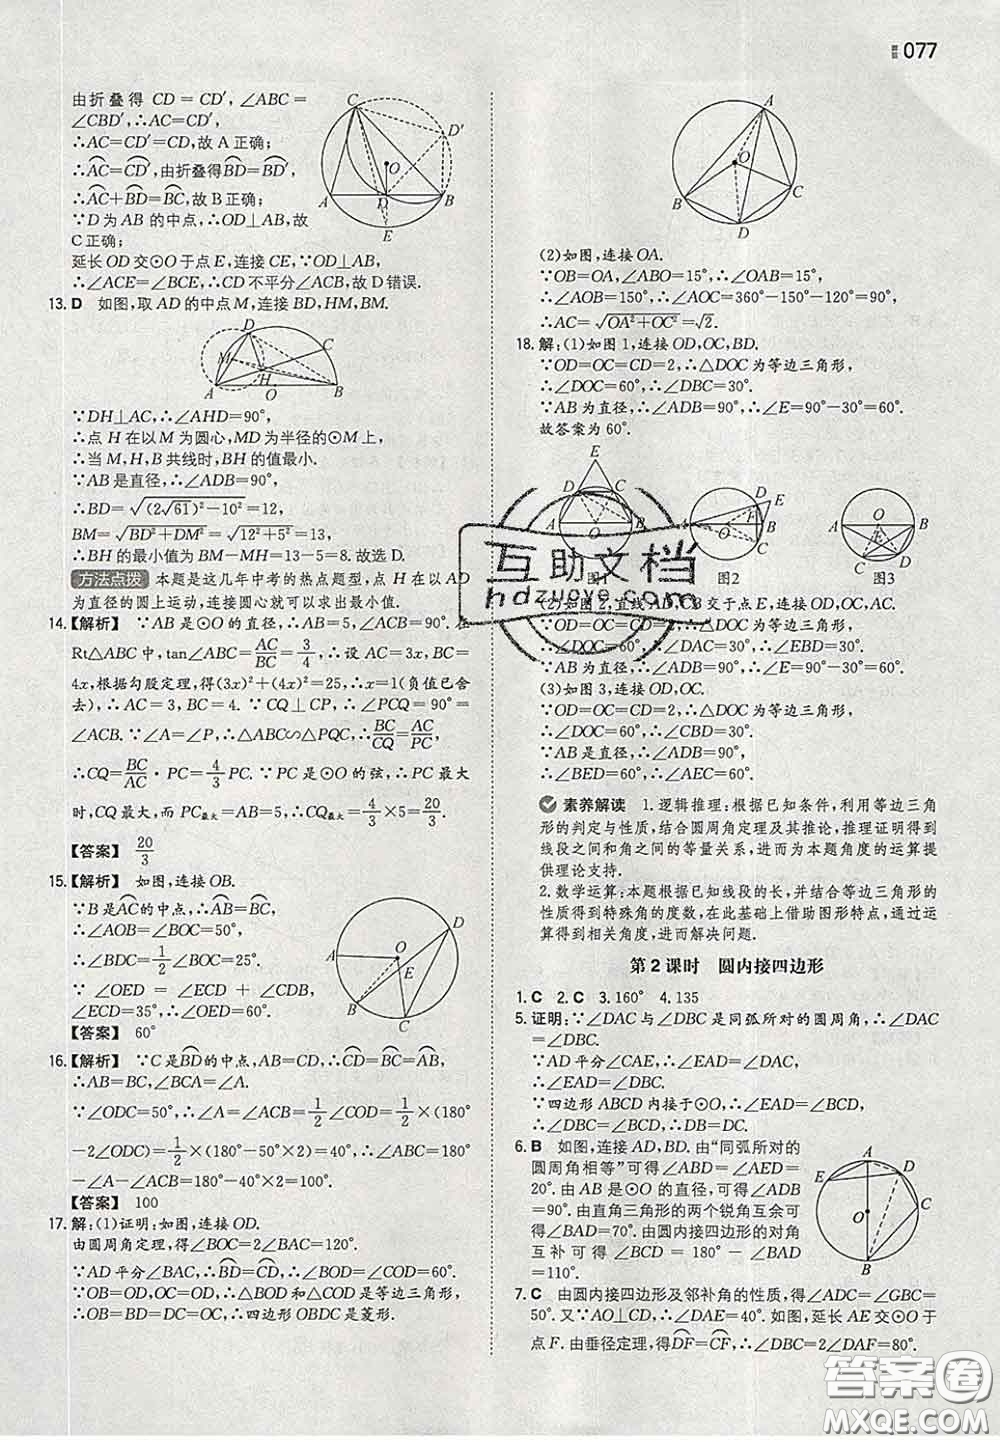 答案 077
由折叠得 CD=CD′,∠ABC=
∠CBD′,∴AC=CD′,
∴AC=CD′=CD,故 A 正确;
∴⌒AC=⌒CD′,由折叠得⌒BD=⌒BD′,
∴⌒AC+⌒BD=⌒BC,故 B 正确;
∵D 为 AB 的中点,∴OD⊥AB,故
C 正确;
延长 OD 交⊙O 于点 E,连接 CE,∵OD⊥AB,
∴∠ACE=∠BCE,∴CD 不平分∠ACB,故 D 错误.
C
D′
O
A
D
B
E
13. D 如图,取 AD 的中点 M,连接 BD,HM,BM.
D
C
M
H
A
O
B
∵DH⊥AC,∴∠AHD=90°,
∴点 H 在以 M 为圆心,MD 为半径的⊙M 上,
∴当 M,H,B 共线时,BH 的值最小.
∵AB 是直径,∴∠ADB=90°,
∴BD=√((2√61)²-10²)=12,
BM=√(BD²+DM²)=√(12²+5²)=13,
∴BH 的最小值为 BM-MH=13-5=8.故选 D.
方法点拨 本题是这几年中考的热点题型,点 H 在以 AD
为直径的圆上运动,连接圆心就可以求出最小值.
14.【解析】 ∵AB 是⊙O 的直径,∴AB=5,∠ACB=90°.在
Rt△ABC 中,tan∠ABC=AC/BC=3/4,∴设 AC=3x,BC=
4x,根据勾股定理,得(3x)²+(4x)²=25,∴x=1(负值已舍
去),∴AC=3,BC=4.∵CQ⊥CP,∴∠PCQ=90°=
∠ACB.∵∠A=∠P,∴△ABC∽△PQC,∴BC/CQ=AC/PC,
∴CQ=BC/AC·PC=4/3PC.∵PC 是⊙O 的弦,∴PC 最大
时,CQ 最大,而 PC最大=AB=5,∴CQ最大=4/3×5=20/3.
【答案】 20/3
15.【解析】 如图,连接 OB.
∵B 是⌒AC的中点,∴⌒AB=⌒BC,
∴∠AOB=∠BOC=50°,
∴∠BDC=1/2∠BOC=25°.
∵∠OED=∠ECD+∠CDB,
∠ECD=35°,∴∠OED=60°.
【答案】 60°
D
A
O
E
B
C
16.【解析】 ∵C 是⌒BD的中点,AB=CD,∴⌒CD=⌒BC=⌒AB,
∴AB=BC,∠BCA=∠A.
∵∠ODC=50°,∴∠A=∠ACB=1/2∠COD=1/2×(180°
-2∠ODC)=1/2×(180°-50°×2)=40°,∴∠ABC=180°
-∠A-∠ACB=180°-40°-40°=100°.
【答案】 100
17. 解:(1)证明:如图,连接 OD.
由圆周角定理,得∠BOC=2∠BAC=120°.
∵AD 平分∠BAC,∴⌒BD=⌒CD,∴∠BOD=∠COD=60°.
∵OB=OD,OC=OD,∴△BOD 和△COD 是等边三角形,
∴OB=BD=DC=OC,∴四边形 OBDC 是菱形.
A
O
B
C
D
(2)如图,连接 OA.
∵OB=OA,∠ABO=15°,∴∠BAO=15°,
∴∠AOB=150°,∴∠AOC=360°-150°-120°=90°,
∴AC=√(OA²+OC²)=√2.
18. 解:(1)如图 1,连接 OD,OC,BD.
∵OD=OC=CD=2,∴△DOC 为等边三角形,
∴∠DOC=60°,∴∠DBC=30°.
∵AB 为直径,∴∠ADB=90°,∴∠E=90°-30°=60°.
故答案为 60°.
E
D
C
A
O
B
图1
D
E
F
A
O
B
C
图2
A
O
B
E
D
C
图3
互助文档
hdzuoye.com
(2)如图 2,直线 AD,CB 交于点 E,连接 OD,OC,AC.
∵OD=OC=CD=2,∴△DOC 为等边三角形,
∴∠DOC=60°,∴∠DAC=30°,∴∠EBD=30°.
∵AB 为直径,∴∠ADB=90°,∴∠E=90°-30°=60°.
(3)如图 3,连接 OD,OC.
∵OD=OC=CD=2,∴△DOC 为等边三角形,
∴∠DOC=60°,∴∠CBD=30°.
∵AB 是直径,∴∠ACB=90°,
∴∠BED=60°,∴∠AEC=60°.
素养解读 1. 逻辑推理:根据已知条件,利用等边三角
形的判定与性质,结合圆周角定理及其推论,推理证明得到
线段之间和角之间的等量关系,进而为本题角度的运算提
供理论支持.
2. 数学运算:本题根据已知线段的长,并结合等边三角形的
性质得到特殊角的度数,在此基础上借助图形特点,通过运
算得到相关角度,进而解决问题.
第 2 课时 圆内接四边形
1. C 2. C 3. 160° 4. 135
5. 证明:∵∠DAC 与∠DBC 是同弧所对的圆周角,∴∠DAC
=∠DBC.
∵AD 平分∠CAE,∴∠EAD=∠DAC,
∴∠EAD=∠DBC.
∵四边形 ABCD 内接于⊙O,∴∠EAD=∠BCD,
∴∠DBC=∠BCD,∴DB=DC.
6. B 如图,连接 AD,BD.由“同弧所对的
圆周角相等”可得∠ABD=∠AED=
20°.由 AB 是⊙O 的直径,可得∠ADB=
90°.由直角三角形的两个锐角互余可得
∠BAD=70°.由圆内接四边形的对角
互补可得∠BCD=180°-∠BAD
=110°.
A
E
D
C
O
B
7. C 由圆内接四边形及邻补角的性质,得∠ADC=∠GBC=
50°.又∵AO⊥CD,∴∠DAE=40°.如图,延长 AE 交⊙O 于
点 F.由垂径定理,得⌒DF=⌒CF,∴∠DBC=2∠DAF=80°.
答案圈
MXQE.COM